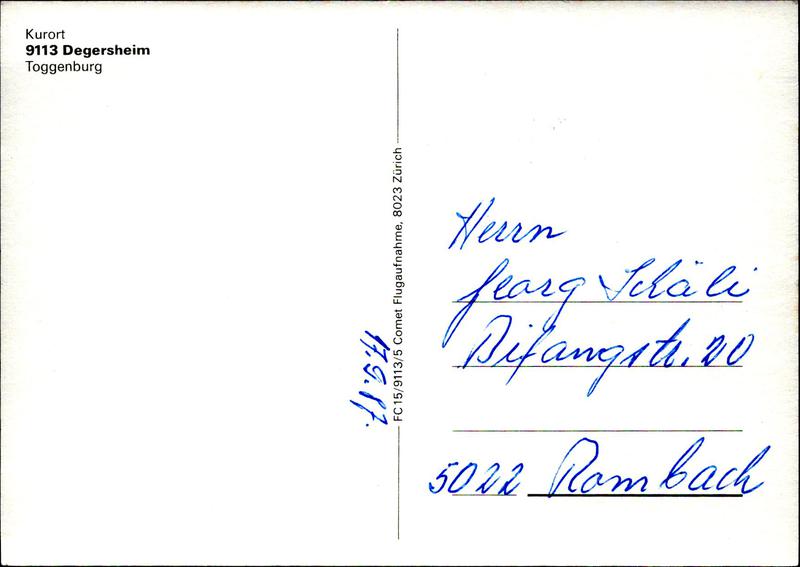 Kurort
9113 Degersheim
Toggenburg
FC15/9113/5 Comet Flugaufnahme, 8023 Zürich
17.9.87.
Herrn
Georg Schäli
Bifangstr. 20
5022 Rombach